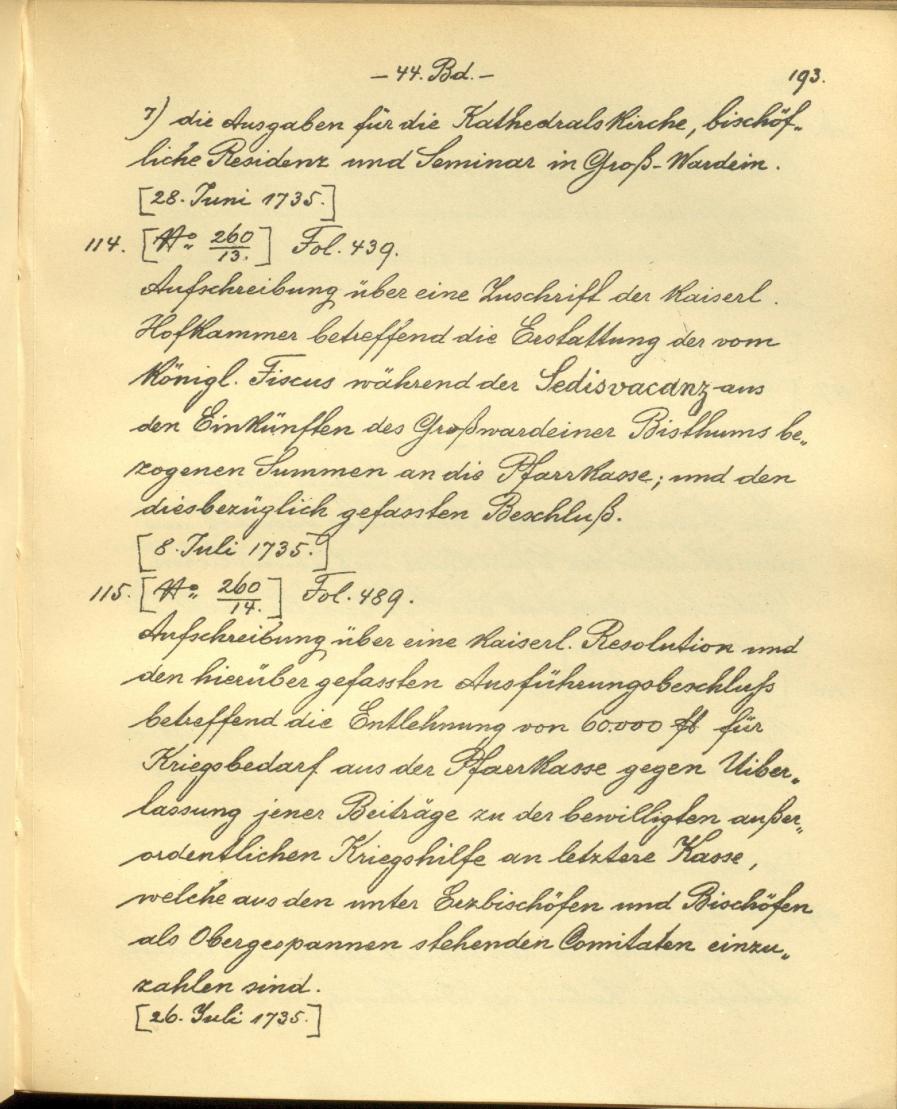 — 44. Bd. — 193.
7) die Ausgaben für die Kathedralskirche, bischöf„
liche Residenz und Seminar in Groß-Wardein.
[28. Juni 1735.]
114. [No 260/13.] Fol. 439.
Aufschreibung über eine Zuschrift der Kaiserl.
Hofkammer betreffend die Erstattung der vom
Königl. Fiscus während der Sedisvacanz aus
den Einkünften des Großwardeiner Bisthums be„
zogenen Summen an die Pfarrkasse; und den
diesbezüglich gefassten Beschluß.
[8. Juli 1735.]
115. [No 260/14.] Fol. 489.
Aufschreibung über eine Kaiserl. Resolution und
den hierüber gefassten Ausführungsbeschluss
betreffend die Entlehnung von 60.000 fl für
Kriegsbedarf aus der Pfarrkasse gegen Uiber„
lassung jener Beiträge zu der bewilligten außer„
ordentlichen Kriegshilfe an letztere Kasse,
welche aus den unter Erzbischöfen und Bischöfen
als Obergespannen stehenden Comitaten einzu„
zahlen sind.
[26. Juli 1735.]